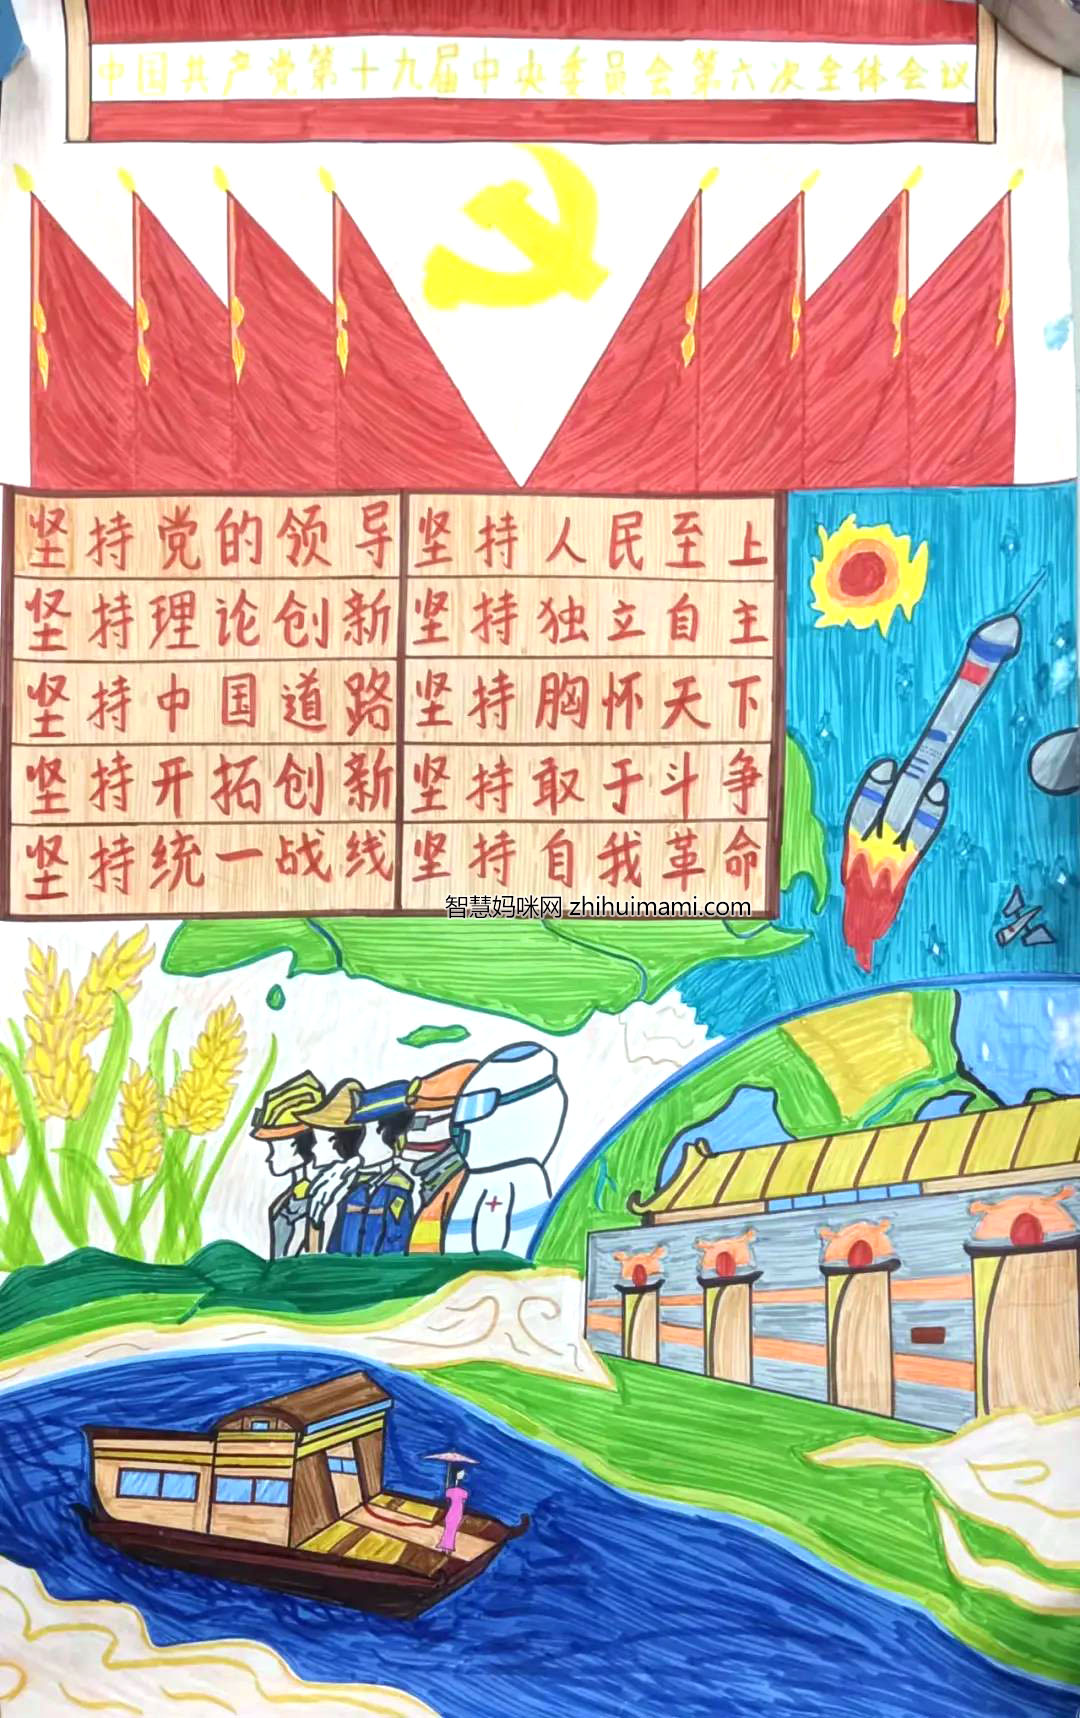 中国共产党第十九届中央委员会第六次全体会议
坚持党的领导
坚持人民至上
坚持理论创新
坚持独立自主
坚持中国道路
坚持胸怀天下
坚持开拓创新
坚持敢于斗争
坚持统一战线
坚持自我革命
智慧妈咪网 zhihuimami.com